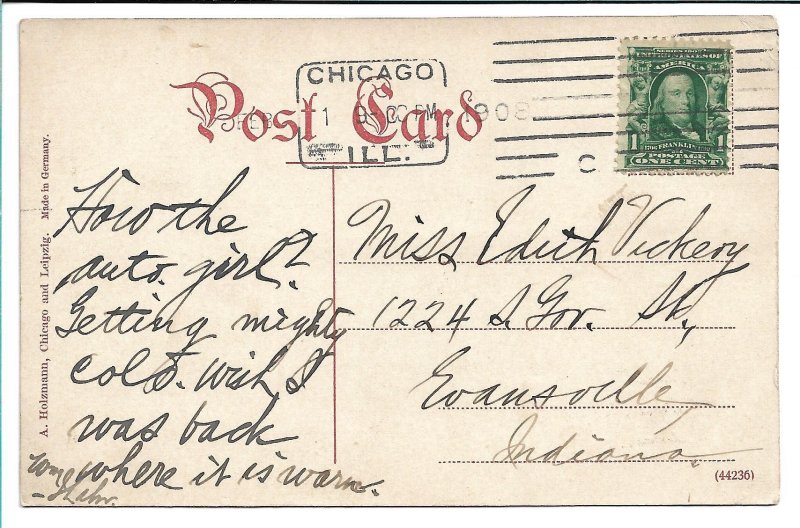 Post Card
CHICAGO
FEB 1 9-00 PM 1908
ILL.
C
SERIES 1902
UNITED STATES OF
AMERICA
1 FRANKLIN 1
POSTAGE
ONE CENT
A. Holzmann, Chicago and Leipzig. Made in Germany.
How the
auto. girl?
Getting mighty
cold. Wish I
was back
where it is warm.
Wm
Miss Edith Vickery
1224 S. Gov. St.,
Evansville,
Indiana.
(44236)